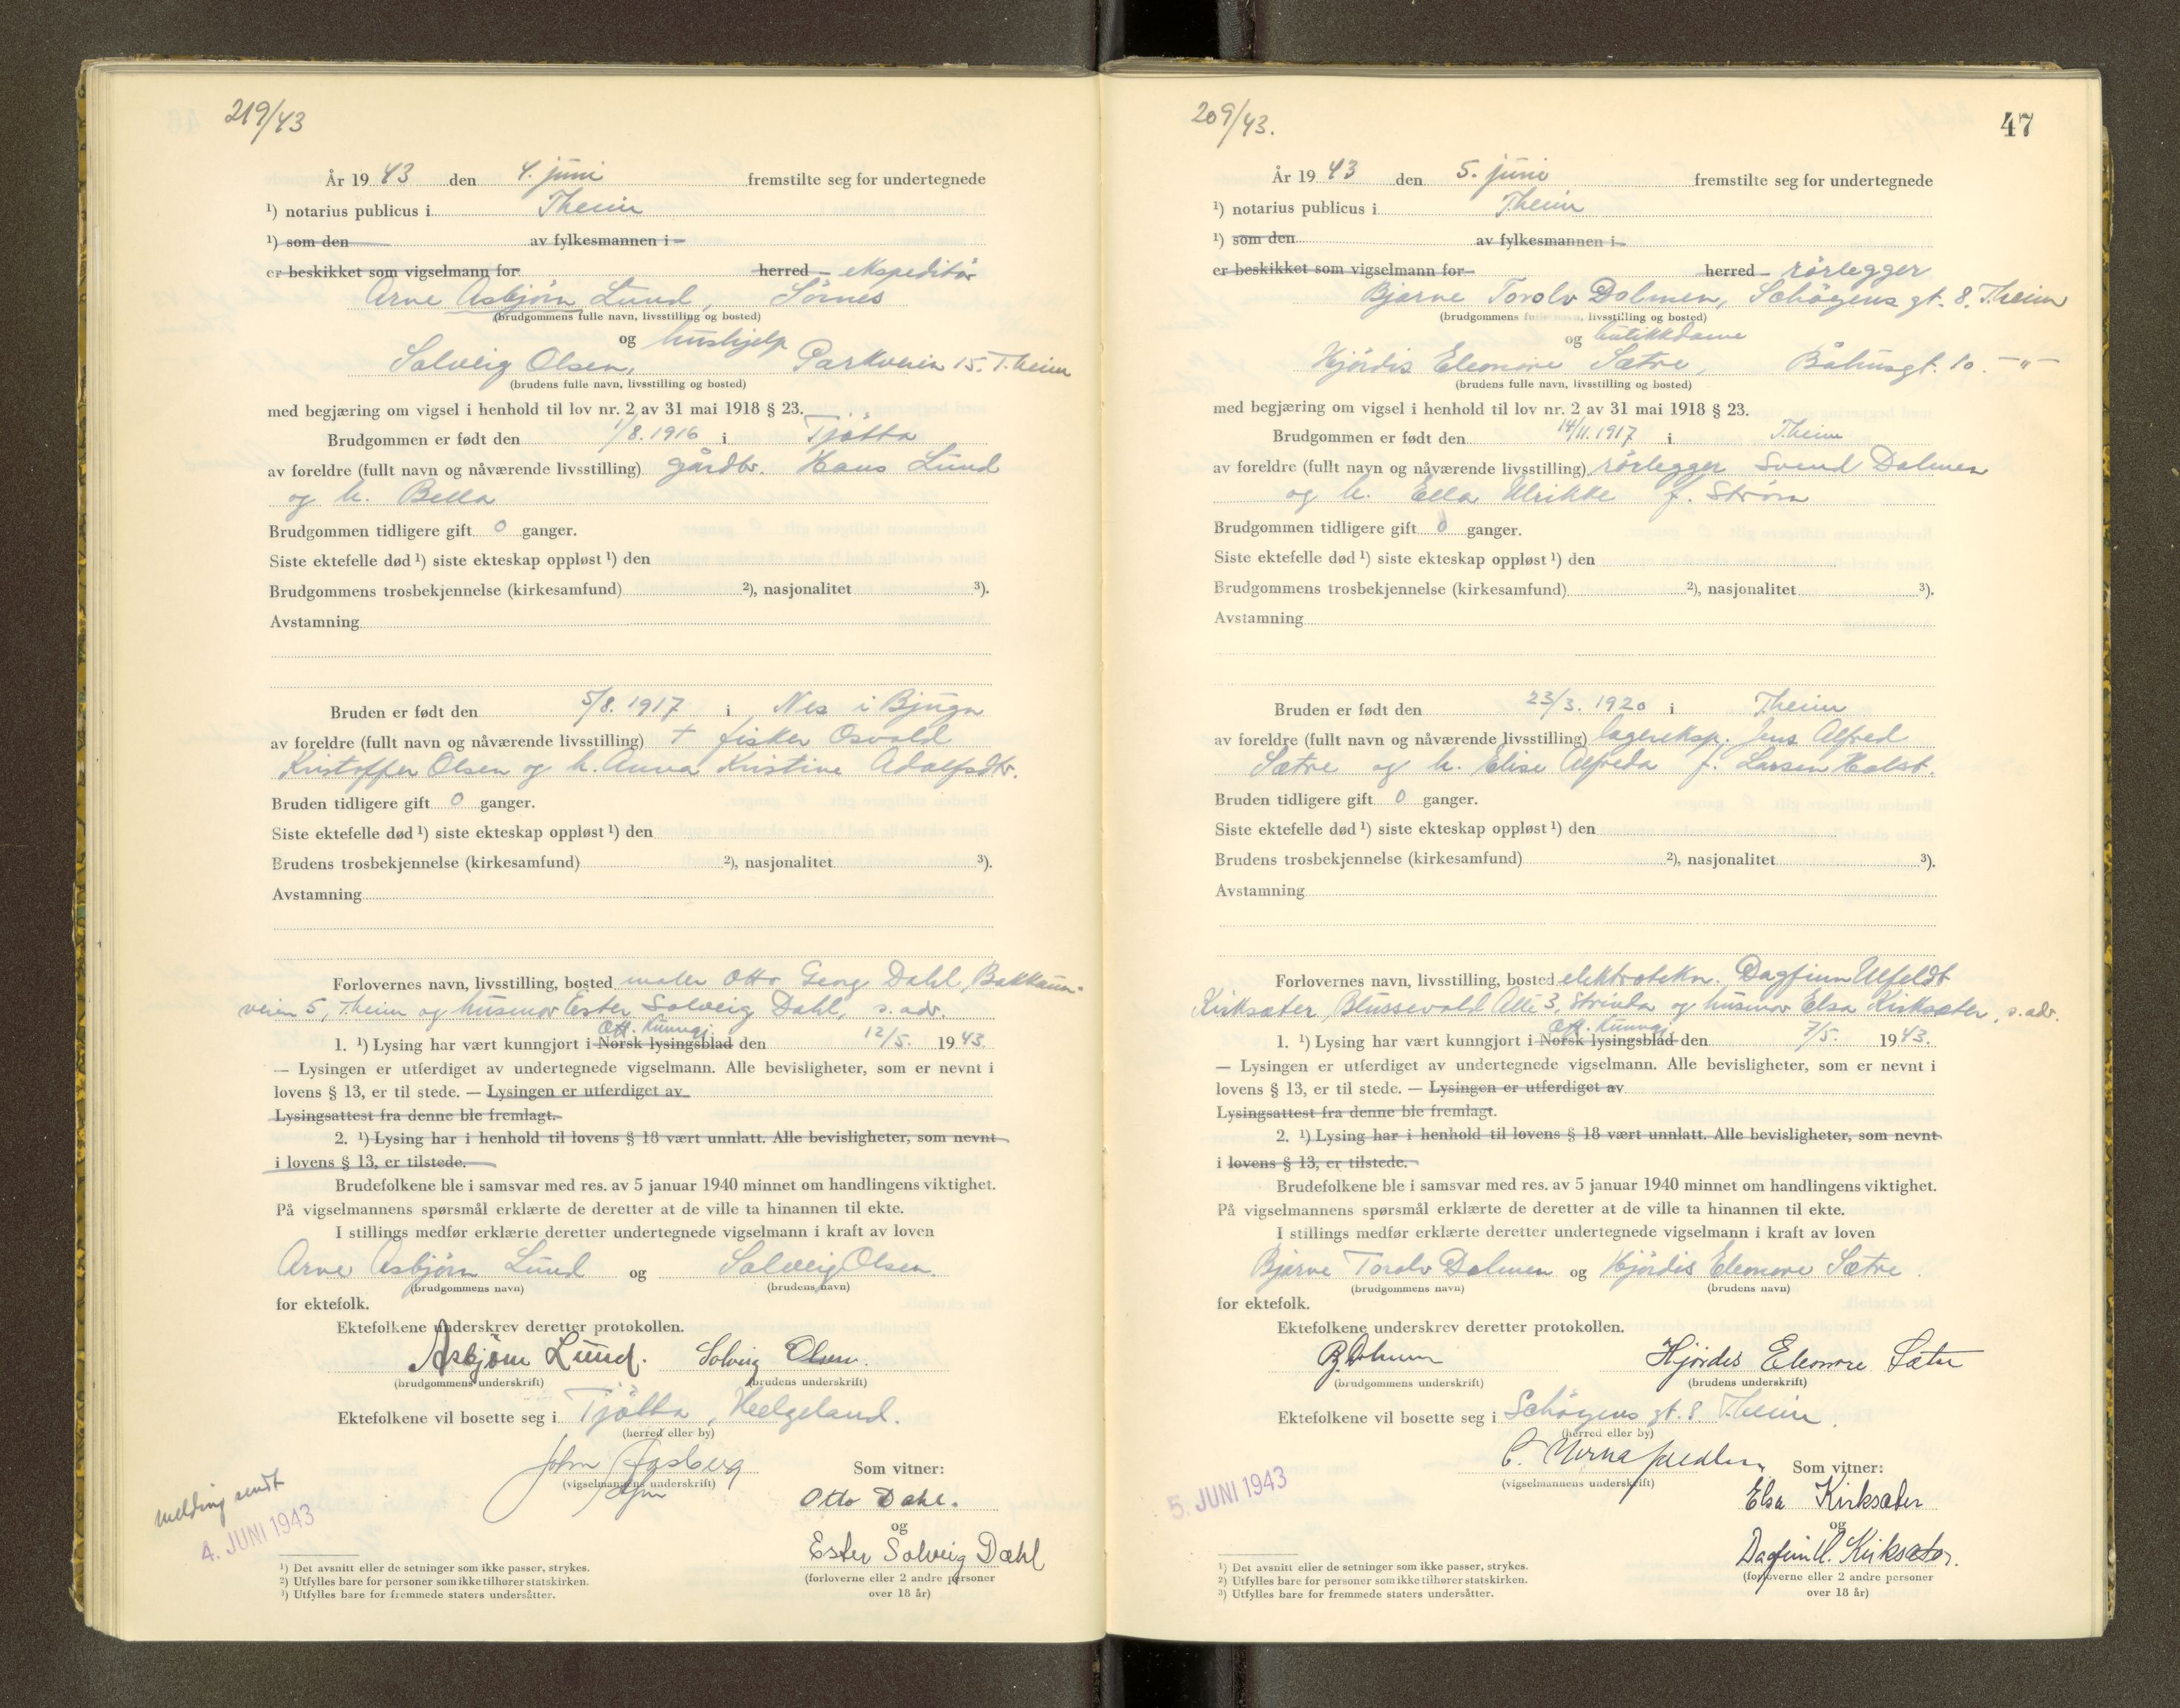 219/43
År 19 43 den 4. juni fremstilte seg for undertegnede
¹) notarius publicus i Theim
¹) som den av fylkesmannen i
er beskikket som vigselmann for herred ekspeditør
Arne Asbjørn Lund, Sörnes
(brudgommens fulle navn, livsstilling og bosted)
og hushjelp
Solveig Olsen, Parkveien 15. T.heim
(brudens fulle navn, livsstilling og bosted)
med begjæring om vigsel i henhold til lov nr. 2 av 31 mai 1918 § 23.
Brudgommen er født den 1/8. 1916 i Tjøtta
av foreldre (fullt navn og nåværende livsstilling) gårdbr. Hans Lund
og h. Bella
Brudgommen tidligere gift 0 ganger.
Siste ektefelle død ¹) siste ekteskap oppløst ¹) den
Brudgommens trosbekjennelse (kirkesamfund) ²), nasjonalitet ³).
Avstamning
Bruden er født den 5/8. 1917 i Nes i Bjugn
av foreldre (fullt navn og nåværende livsstilling) + fisker Osvald
Kristoffer Olsen og h. Anna Kristine Adolfsdtr.
Bruden tidligere gift 0 ganger.
Siste ektefelle død ¹) siste ekteskap oppløst ¹) den
Brudens trosbekjennelse (kirkesamfund) ²), nasjonalitet ³).
Avstamning
Forlovernes navn, livsstilling, bosted maler Otto Georg Dahl, Bakkaun-
veien 5, Theim og husmor Ester Solveig Dahl, s. adr.
Off. Kunngj.
1. ¹) Lysing har vært kunngjort i Norsk lysingsblad den 12/5. 19 43.
— Lysingen er utferdiget av undertegnede vigselmann. Alle bevisligheter, som er nevnt i
lovens § 13, er til stede. — Lysingen er utferdiget av
Lysingsattest fra denne ble fremlagt.
2. ¹) Lysing har i henhold til lovens § 18 vært unnlatt. Alle bevisligheter, som nevnt
i lovens § 13, er tilstede.
Brudefolkene ble i samsvar med res. av 5 januar 1940 minnet om handlingens viktighet.
På vigselmannens spørsmål erklærte de deretter at de ville ta hinannen til ekte.
I stillings medfør erklærte deretter undertegnede vigselmann i kraft av loven
Arne Asbjørn Lund og Solveig Olsen.
(brudgommens navn) (brudens navn)
for ektefolk.
Ektefolkene underskrev deretter protokollen.
Asbjørn Lund. Solveig Olsen.
(brudgommens underskrift) (brudens underskrift)
Ektefolkene vil bosette seg i Tjøtta, Helgeland.
(herred eller by)
John Aasberg
(vigselmannens underskrift)
Som vitner:
Otto Dahl.
og
Ester Solveig Dahl
(forloverne eller 2 andre personer
over 18 år)
melding sendt
4. JUNI 1943
¹) Det avsnitt eller de setninger som ikke passer, strykes.
²) Utfylles bare for personer som ikke tilhører statskirken.
³) Utfylles bare for fremmede staters undersåtter.
209/43.
47
År 19 43 den 5. juni fremstilte seg for undertegnede
¹) notarius publicus i T.heim
¹) som den av fylkesmannen i
er beskikket som vigselmann for herred rørlegger
Bjarne Torolv Dolmen, Schøgens gt. 8, T.heim
(brudgommens fulle navn, livsstilling og bosted)
og butikkdame
Hjördis Eleonore Sætre, Båhusgt. 10. —"—
(brudens fulle navn, livsstilling og bosted)
med begjæring om vigsel i henhold til lov nr. 2 av 31 mai 1918 § 23.
Brudgommen er født den 14/11. 1917 i T.heim
av foreldre (fullt navn og nåværende livsstilling) rørlegger Svend Dolmen
og h. Ella Ulrikke f. Strøm
Brudgommen tidligere gift 0 ganger.
Siste ektefelle død ¹) siste ekteskap oppløst ¹) den
Brudgommens trosbekjennelse (kirkesamfund) ²), nasjonalitet ³).
Avstamning
Bruden er født den 23/3. 1920 i T.heim
av foreldre (fullt navn og nåværende livsstilling) lagereksp. Jens Alfred
Sætre og h. Elise Alfreda f. Larsen Holst.
Bruden tidligere gift 0 ganger.
Siste ektefelle død ¹) siste ekteskap oppløst ¹) den
Brudens trosbekjennelse (kirkesamfund) ²), nasjonalitet ³).
Avstamning
Forlovernes navn, livsstilling, bosted elektrotekn. Dagfinn Ulfeldt
Kirksæter, Blussevold Allé 3, Strinda og husmor Elsa Kirksæter, s. adr.
Off. Kunngj.
1. ¹) Lysing har vært kunngjort i Norsk lysingsblad den 7/5. 19 43.
— Lysingen er utferdiget av undertegnede vigselmann. Alle bevisligheter, som er nevnt i
lovens § 13, er til stede. — Lysingen er utferdiget av
Lysingsattest fra denne ble fremlagt.
2. ¹) Lysing har i henhold til lovens § 18 vært unnlatt. Alle bevisligheter, som nevnt
i lovens § 13, er tilstede.
Brudefolkene ble i samsvar med res. av 5 januar 1940 minnet om handlingens viktighet.
På vigselmannens spørsmål erklærte de deretter at de ville ta hinannen til ekte.
I stillings medfør erklærte deretter undertegnede vigselmann i kraft av loven
Bjarne Torolv Dolmen og Hjördis Eleonore Sætre.
(brudgommens navn) (brudens navn)
for ektefolk.
Ektefolkene underskrev deretter protokollen.
B. Dolmen Hjördis Eleonore Sæter
(brudgommens underskrift) (brudens underskrift)
Ektefolkene vil bosette seg i Schøgens gt. 8 T.heim.
(herred eller by)
(vigselmannens underskrift)
Som vitner:
Elsa Kirksæter
og
Dagfinn U. Kirksæter.
(forloverne eller 2 andre personer
over 18 år)
5. JUNI 1943
¹) Det avsnitt eller de setninger som ikke passer, strykes.
²) Utfylles bare for personer som ikke tilhører statskirken.
³) Utfylles bare for fremmede staters undersåtter.